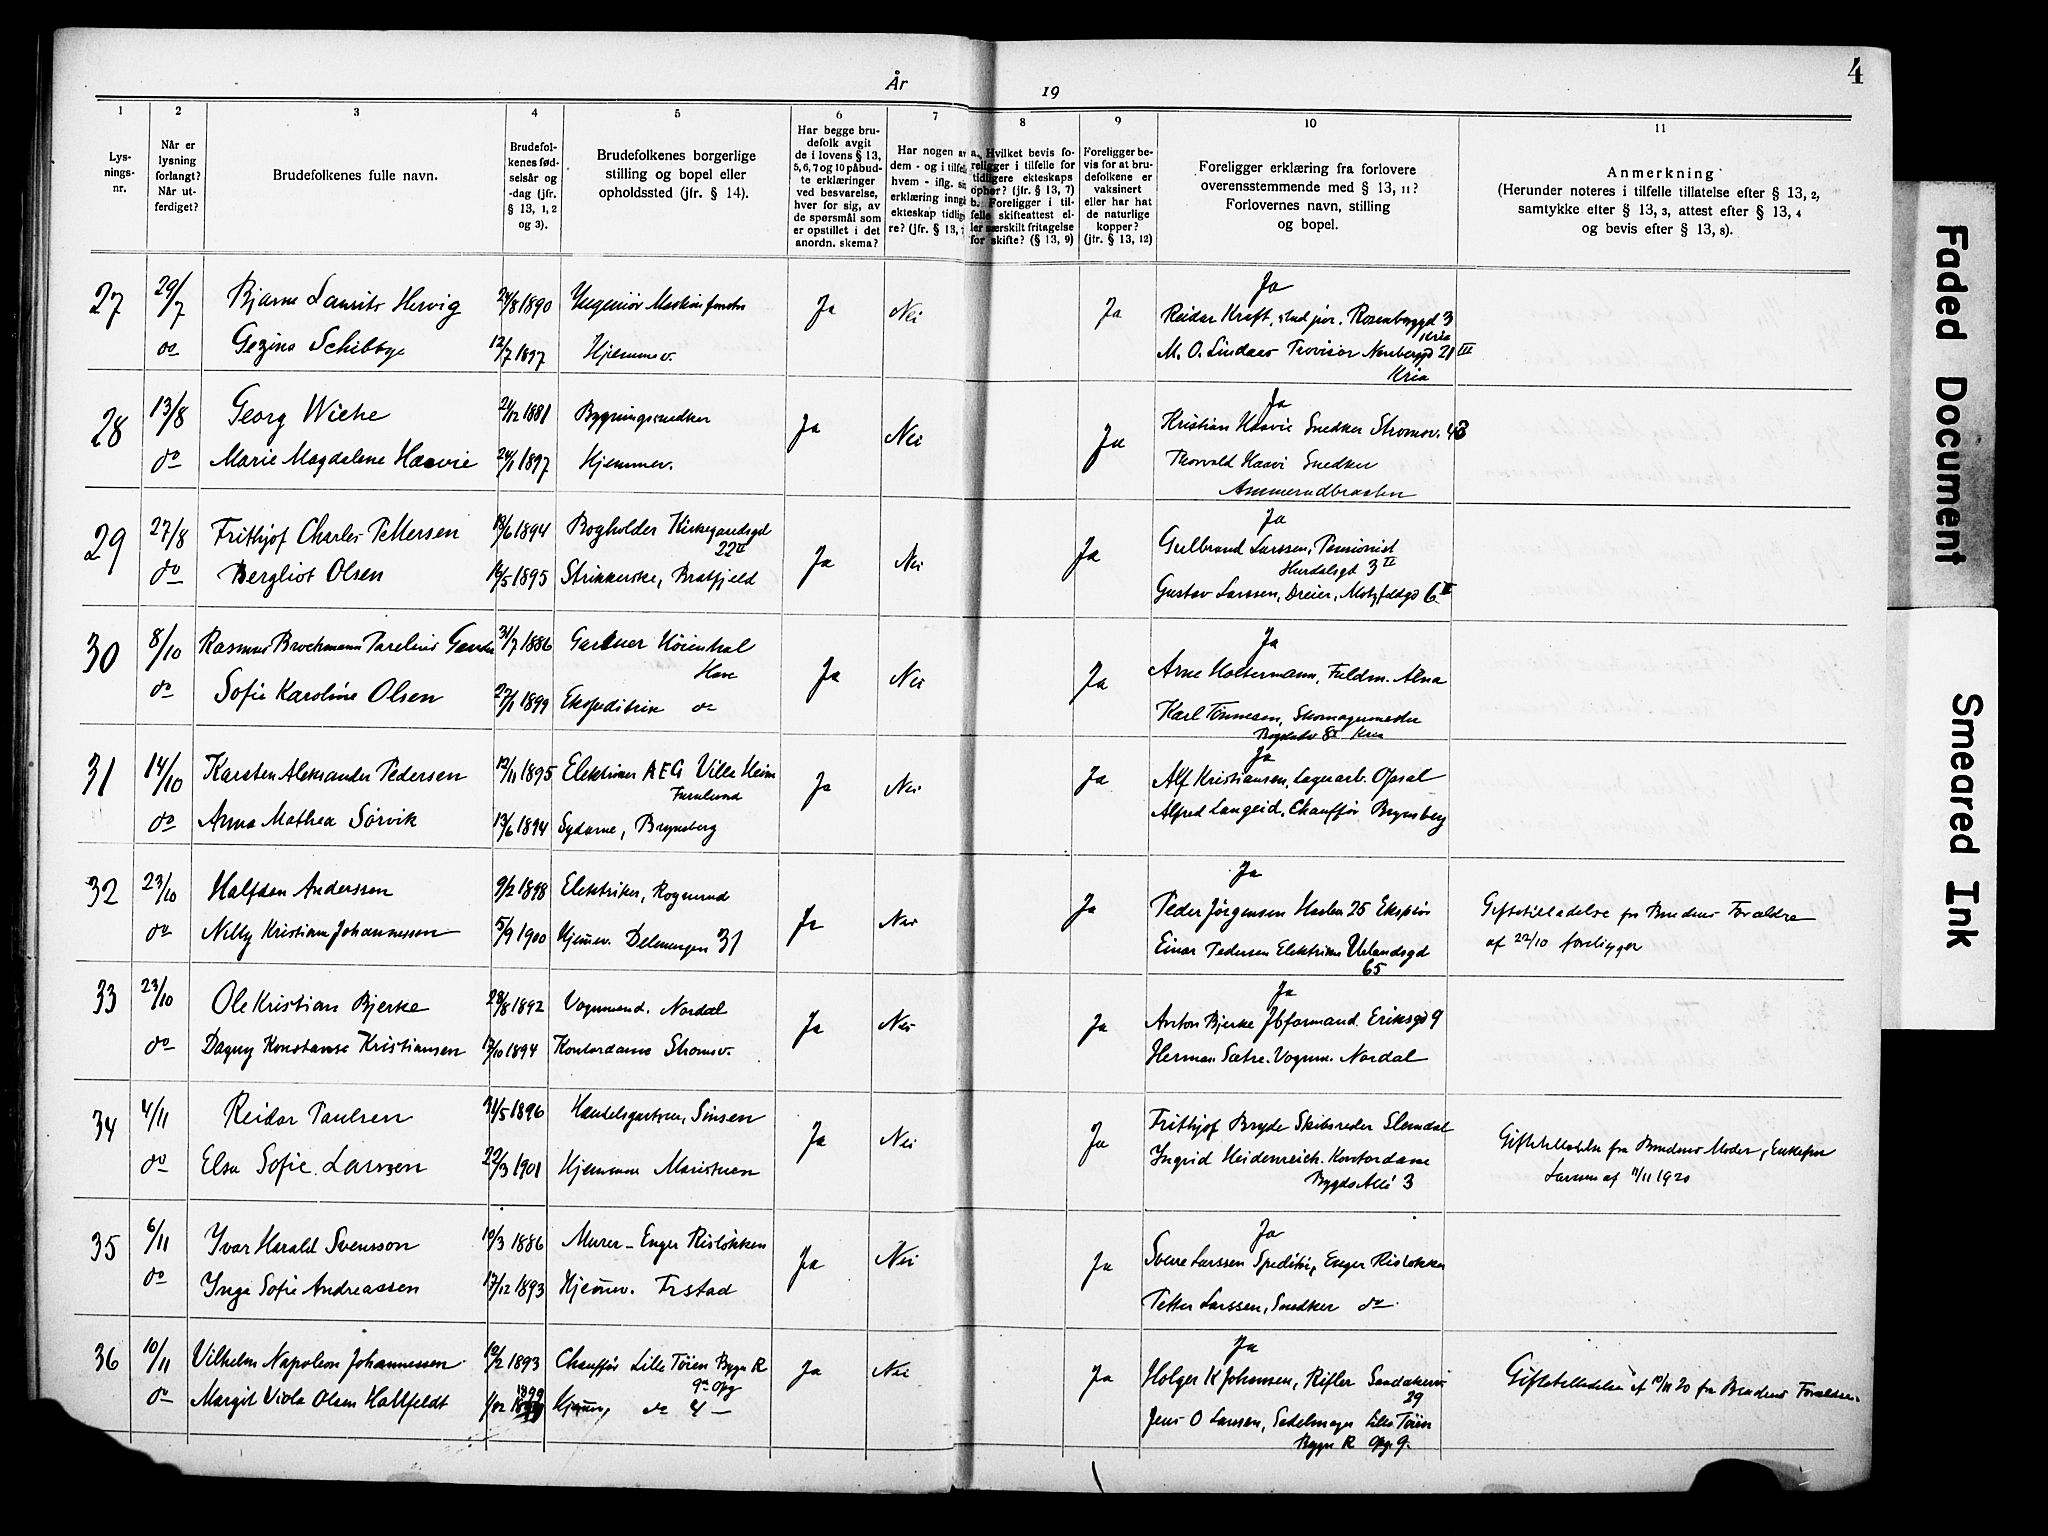 4
År 19
1 2 3 4 5 6 7 8 9 10 11
Lys-
nings-
nr.
Når er
lysning
forlangt?
Når ut-
ferdiget?
Brudefolkenes fulle navn.
Brudefol-
kenes fød-
selsår og
-dag (jfr.
§ 13, 1, 2
og 3).
Brudefolkenes borgerlige
stilling og bopel eller
opholdssted (jfr. § 14).
Har begge bru-
defolk avgit
de i lovens § 13,
5, 6, 7 og 10 påbud-
te erklæringer
ved besvarelse,
hver for sig, av
de spørsmål som
er opstillet i det
anordn. skema?
Har nogen av
dem - og i tilfelle
hvem - iflg. sin
erklæring inngått
ekteskap tidlige-
re? (jfr. § 13,
a. Hvilket bevis fo-
religger i tilfelle for
tidligere ekteskaps
ophør? (jfr. § 13, 7)
b. Foreligger i til-
felle skifteattest el-
ler særskilt fritagelse
for skifte? (§ 13, 9)
Foreligger be-
vis for at bru-
defolkene er
vaksinert
eller har hat
de naturlige
kopper?
(jfr. § 13, 12)
Foreligger erklæring fra forlovere
overensstemmende med § 13, 11?
Forlovernes navn, stilling
og bopel.
Anmerkning
(Herunder noteres i tilfelle tillatelse efter § 13, 2,
samtykke efter § 13, 3, attest efter § 13, 4
og bevis efter § 13, 8).
27 29/7 Bjarne Laurits Hervig 24/8 1890 Ingeniør Ja Nei Ja Ja
Reidar Kraft, stud jur. Rosenborggd 3
Kria
do Gezina Schibbye 12/7 1897 Hjemmev. M. O. Lindaas Provisor 21 III
Kria
28 13/8 Georg Wiche 24/12 1881 Bygningssnedker Ja Nei Ja Ja
Kristian Haavie Snedker Strømsv. 43
do Marie Magdalene Haavie 24/1 1897 Hjemmev. Thorvald Haavi Snedker
Ammerudbraaten
29 27/8 Frithjof Charles Pettersen 18/6 1894 Bogholder Kirkegaardsgd
22 II Ja Nei Ja Ja
Gulbrand Larssen, Pensionist
Hurdalsgd 3 II
do Bergliot Olsen 16/5 1895 Strikkerske, Bratfjeld Gustav Larssen, Dreier, Motzfeldtgd 6 II
30 8/10 Rasmus Brochmann Parelius 31/7 1886 Gartner Høienhal
Have Ja Nei Ja Ja
Arne Holtermann, Fuldm. Alna
do Sofie Karoline Olsen 22/1 1899 Ekspeditrice do Karl Tønnesen, Skomagermester
Kria
31 14/10 Karsten Aleksander Pedersen 12/11 1895 Elektriker AEG Villa Heim
Furulund Ja Nei Ja Ja
Alf Kristiansen, Lagerarb. Opsal
do Anna Mathea Sørvik 13/6 1894 Sydame, Brynsberg Alfred Langeid, Chauffør Brynsberg
32 23/10 Halfdan Anderssen 9/2 1898 Elektriker, Rognerud Ja Nei Ja Ja
Peder Jørgensen Haslen 25 Ekspeditør Giftetilladelse fra Brudens Forældre
do Nelly Kristiane Johannessen 5/9 1900 Hjemmev. Delenengen 31 Einar Pedersen Elektriker Uelandsgd
65 af 22/10 foreligger
33 23/10 Ole Kristian Bjerke 28/8 1892 Vognmand. Nordal Ja Nei Ja Ja
Anton Bjerke Jbformand. Eriksgd 9
do Dagny Konstanse Kristiansen 17/10 1894 Kontordame Strømsv. Herman Sætre. Vognm. Nordal
34 4/11 Reidar Paulsen 31/5 1896 Handelsgartner, Sinsen Ja Nei Ja
Frithjof Bryde Skibsreder Slemdal Giftetilladelse fra Brudens Moder, Enkefru
do Elsa Sofie Larssen 22/3 1901 Hjemmev Maristuen Ingrid Heidenreich. Kontordame
Bygdø Allé 3 Larssen af 4/11 1920
35 6/11 Yvar Harald Svensson 10/3 1886 Murer - Enger Risløkken Ja Nei Ja Ja
Sverre Larssen Speditør, Enger Risløkken
do Inga Sofie Andreassen 17/12 1893 Hjemmev. Frstad Petter Larssen, Snedker do
36 10/11 Vilhelm Napoleon Johannessen 10/2 1893 Chauffør Lille Tøien Bygn R
Opg Ja Nei Ja Ja
Holger K Johansen, Rifler Sandakerv
29 Giftetilladelse af 10/11 20 fra Brudens Forældre.
do Margit Viola Olsen Hallfeldt 1/12 1899 Hjemmev, do 4 - Jens O Larssen, Sadelmager Lille Tøien
Bygn R Opg. 9.
Faded Document
Smeared Ink